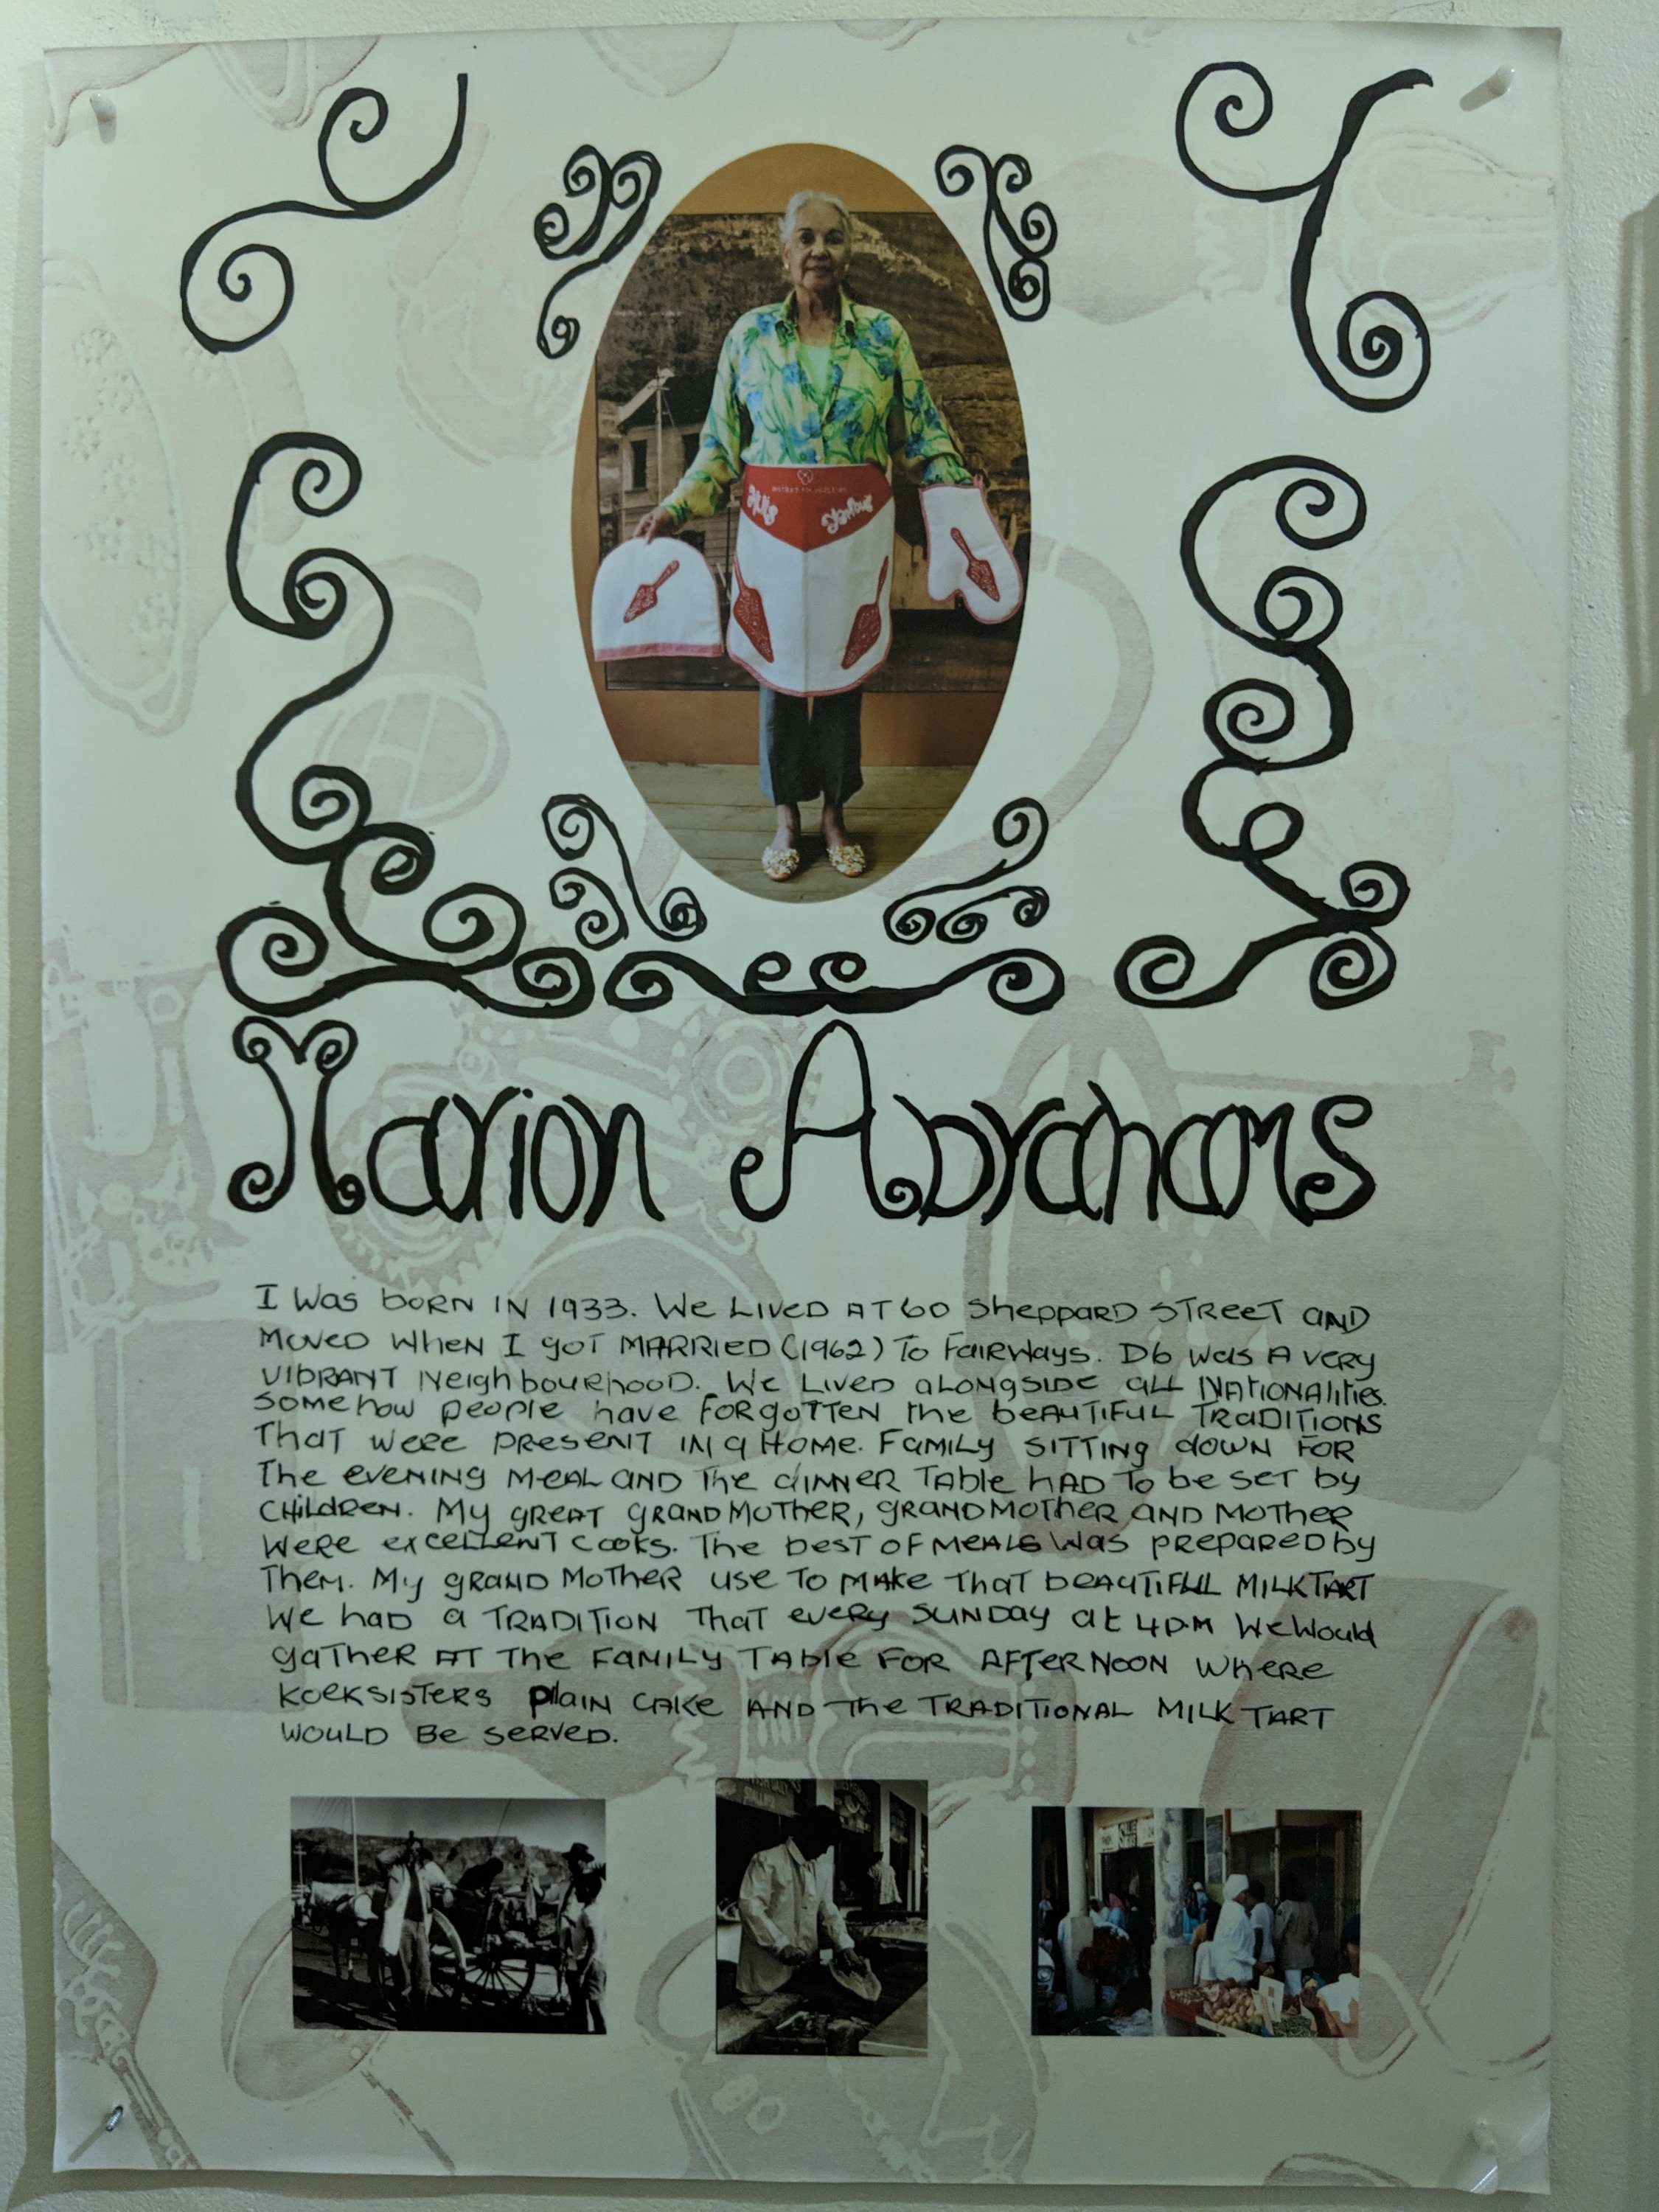 Marion Abrahams
I WAS BORN IN 1933. WE LIVED AT 60 SHEPPARD STREET AND
MOVED WHEN I GOT MARRIED (1962) TO FAIRWAYS. D6 WAS A VERY
VIBRANT NEIGHBOURHOOD. WE LIVED ALONGSIDE ALL NATIONALITIES.
SOMEHOW PEOPLE HAVE FORGOTTEN THE BEAUTIFUL TRADITIONS
THAT WERE PRESENT IN A HOME. FAMILY SITTING DOWN FOR
THE EVENING MEAL AND THE DINNER TABLE HAD TO BE SET BY
CHILDREN. MY GREAT GRANDMOTHER, GRANDMOTHER AND MOTHER
WERE EXCELLENT COOKS. THE BEST OF MEALS WAS PREPARED BY
THEM. MY GRANDMOTHER USE TO MAKE THAT BEAUTIFUL MILKTART
WE HAD A TRADITION THAT EVERY SUNDAY AT 4P.M WE WOULD
GATHER AT THE FAMILY TABLE FOR AFTERNOON WHERE
KOEKSISTERS PLAIN CAKE AND THE TRADITIONAL MILK TART
WOULD BE SERVED.